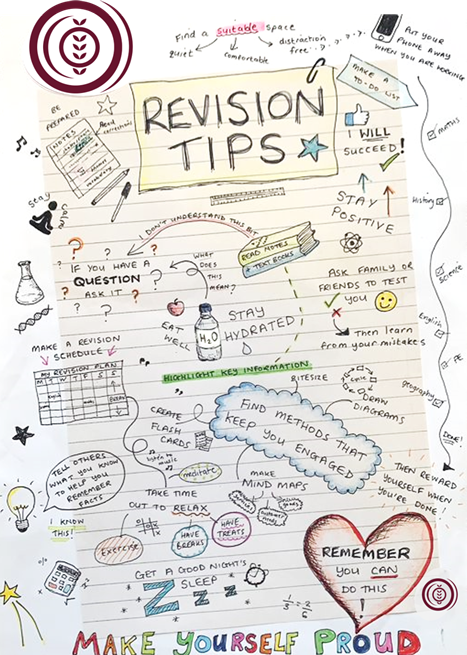 Find a suitable space
quiet
comfortable
distraction
free
PUT YOUR
PHONE AWAY
WHEN YOU ARE WORKING
MAKE A
TO-DO LIST
BE
PREPARED
NOTES
Read
REVISION
TIPS
I WILL
SUCCEED!
maths
STAY
CALM
STAY
POSITIVE
History
I DON'T UNDERSTAND THIS BIT
READ NOTES
+ TEXT BOOKS
IF YOU HAVE A
QUESTION
ASK IT
WHAT
DOES
THIS
MEAN?
ASK FAMILY OR
FRIENDS TO TEST
YOU
Then learn
from your mistakes
Science
English
PE
geography
DONE!
EAT
WELL
H2O
STAY
HYDRATED
MAKE A REVISION
SCHEDULE
MY REVISION PLAN
M T W T F S S
HIGHLIGHT KEY INFORMATION
BITESIZE
DRAW
DIAGRAMS
CREATE
FLASH
CARDS
FIND METHODS THAT
KEEP YOU ENGAGED
listen to
music
meditate
MAKE
MIND MAPS
TELL OTHERS
WHAT YOU KNOW
TO HELP YOU
REMEMBER
FACTS
I KNOW
THIS!
TAKE TIME
OUT TO RELAX
Exercise
HAVE
BREAKS
HAVE
TREATS
THEN REWARD
YOURSELF WHEN
YOU'RE DONE!
GET A GOOD NIGHT'S
SLEEP
Z z z
1/3 = 2/6
REMEMBER
YOU CAN
DO THIS
!
MAKE YOURSELF PROUD